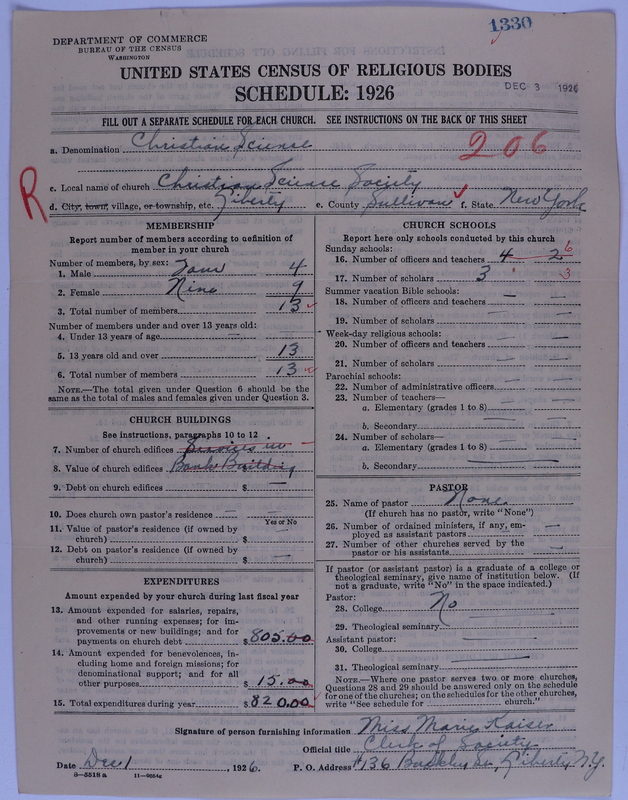 1330
DEPARTMENT OF COMMERCE
BUREAU OF THE CENSUS
WASHINGTON
UNITED STATES CENSUS OF RELIGIOUS BODIES
SCHEDULE: 1926
DEC 3 1926
FILL OUT A SEPARATE SCHEDULE FOR EACH CHURCH. SEE INSTRUCTIONS ON THE BACK OF THIS SHEET
a. Denomination Christian Science
206
c. Local name of church Christian Science Society
R
d. City, town, village, or township, etc. Liberty e. County Sullivan f. State New York
MEMBERSHIP
Report number of members according to definition of
member in your church
Number of members, by sex:
1. Male Four 4
2. Female Nine 9
3. Total number of members 13
Number of members under and over 13 years old:
4. Under 13 years of age —
5. 13 years old and over 13
6. Total number of members 13
NOTE.—The total given under Question 6 should be the
same as the total of males and females given under Question 3.
CHURCH BUILDINGS
See instructions, paragraphs 10 to 12
7. Number of church edifices Services in
8. Value of church edifices Bank Building
9. Debt on church edifices $ —
10. Does church own pastor's residence —
Yes or No
11. Value of pastor's residence (if owned by
church) $ —
12. Debt on pastor's residence (if owned by
church) $ —
EXPENDITURES
Amount expended by your church during last fiscal year
13. Amount expended for salaries, repairs,
and other running expenses; for im-
provements or new buildings; and for
payments on church debt $ 805.00
14. Amount expended for benevolences, in-
cluding home and foreign missions; for
denominational support; and for all
other purposes $ 15.00
15. Total expenditures during year $ 820.00
CHURCH SCHOOLS
Report here only schools conducted by this church
Sunday schools:
16. Number of officers and teachers 4 2 6
17. Number of scholars 3 3
Summer vacation Bible schools:
18. Number of officers and teachers —
19. Number of scholars —
Week-day religious schools:
20. Number of officers and teachers —
21. Number of scholars —
Parochial schools:
22. Number of administrative officers —
23. Number of teachers—
a. Elementary (grades 1 to 8) —
b. Secondary —
24. Number of scholars—
a. Elementary (grades 1 to 8) —
b. Secondary —
PASTOR
25. Name of pastor None
(If church has no pastor, write "None")
26. Number of ordained ministers, if any, em-
ployed as assistant pastors —
27. Number of other churches served by the
pastor or his assistants —
If pastor (or assistant pastor) is a graduate of a college or
theological seminary, give name of institution below. (If
not a graduate, write "No" in the space indicated.)
Pastor:
28. College No
29. Theological seminary —
Assistant pastor:
30. College —
31. Theological seminary —
NOTE.—Where one pastor serves two or more churches,
Questions 28 and 29 should be answered only on the schedule
for one of the churches; on the schedules for the other churches,
write "See schedule for church."
Signature of person furnishing information Miss Marie Kaiser
Official title Clerk of Society
Date Dec 1, 1926. P. O. Address #136 St., Liberty, N.Y.
8—5518 a 11—9664c